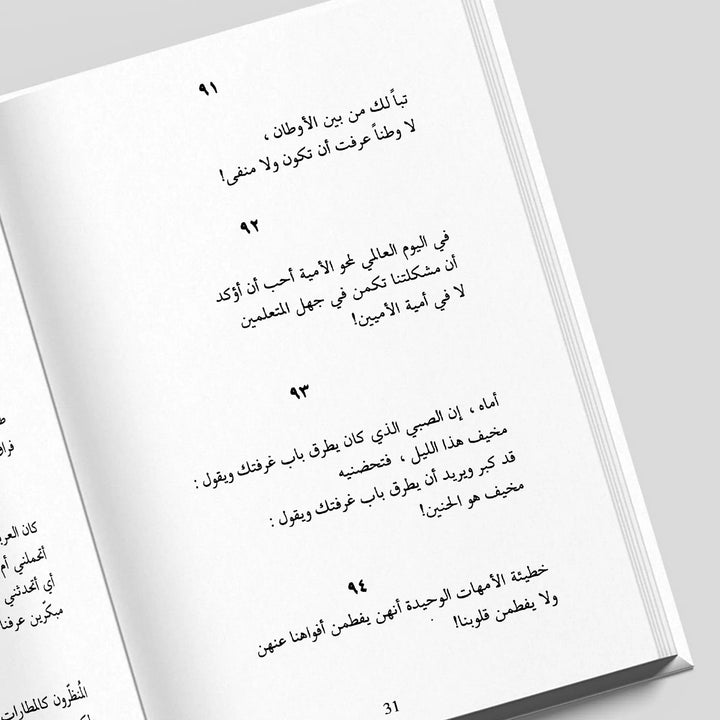 ٩١
تباً لك من بين الأوطان ،
لا وطناً عرفت أن تكون ولا منفى!
٩٢
في اليوم العالمي لمحو الأمية أحب أن أؤكد
أن مشكلتنا تكمن في جهل المتعلمين
لا في أمية الأميين!
٩٣
أماه ، إن الصبي الذي كان يطرق باب غرفتك ويقول :
مخيف هذا الليل ، فتحضنيه
قد كبر ويريد أن يطرق باب غرفتك ويقول :
مخيف هو الحنين!
٩٤
خطيئة الأمهات الوحيدة أنهن يفطمن أفواهنا عنهن
ولا يفطمن قلوبنا!
31
كان
أتحملني أم
أي أتحدثني
مبكرين عرفنا
المُنظّرون كالمطارات